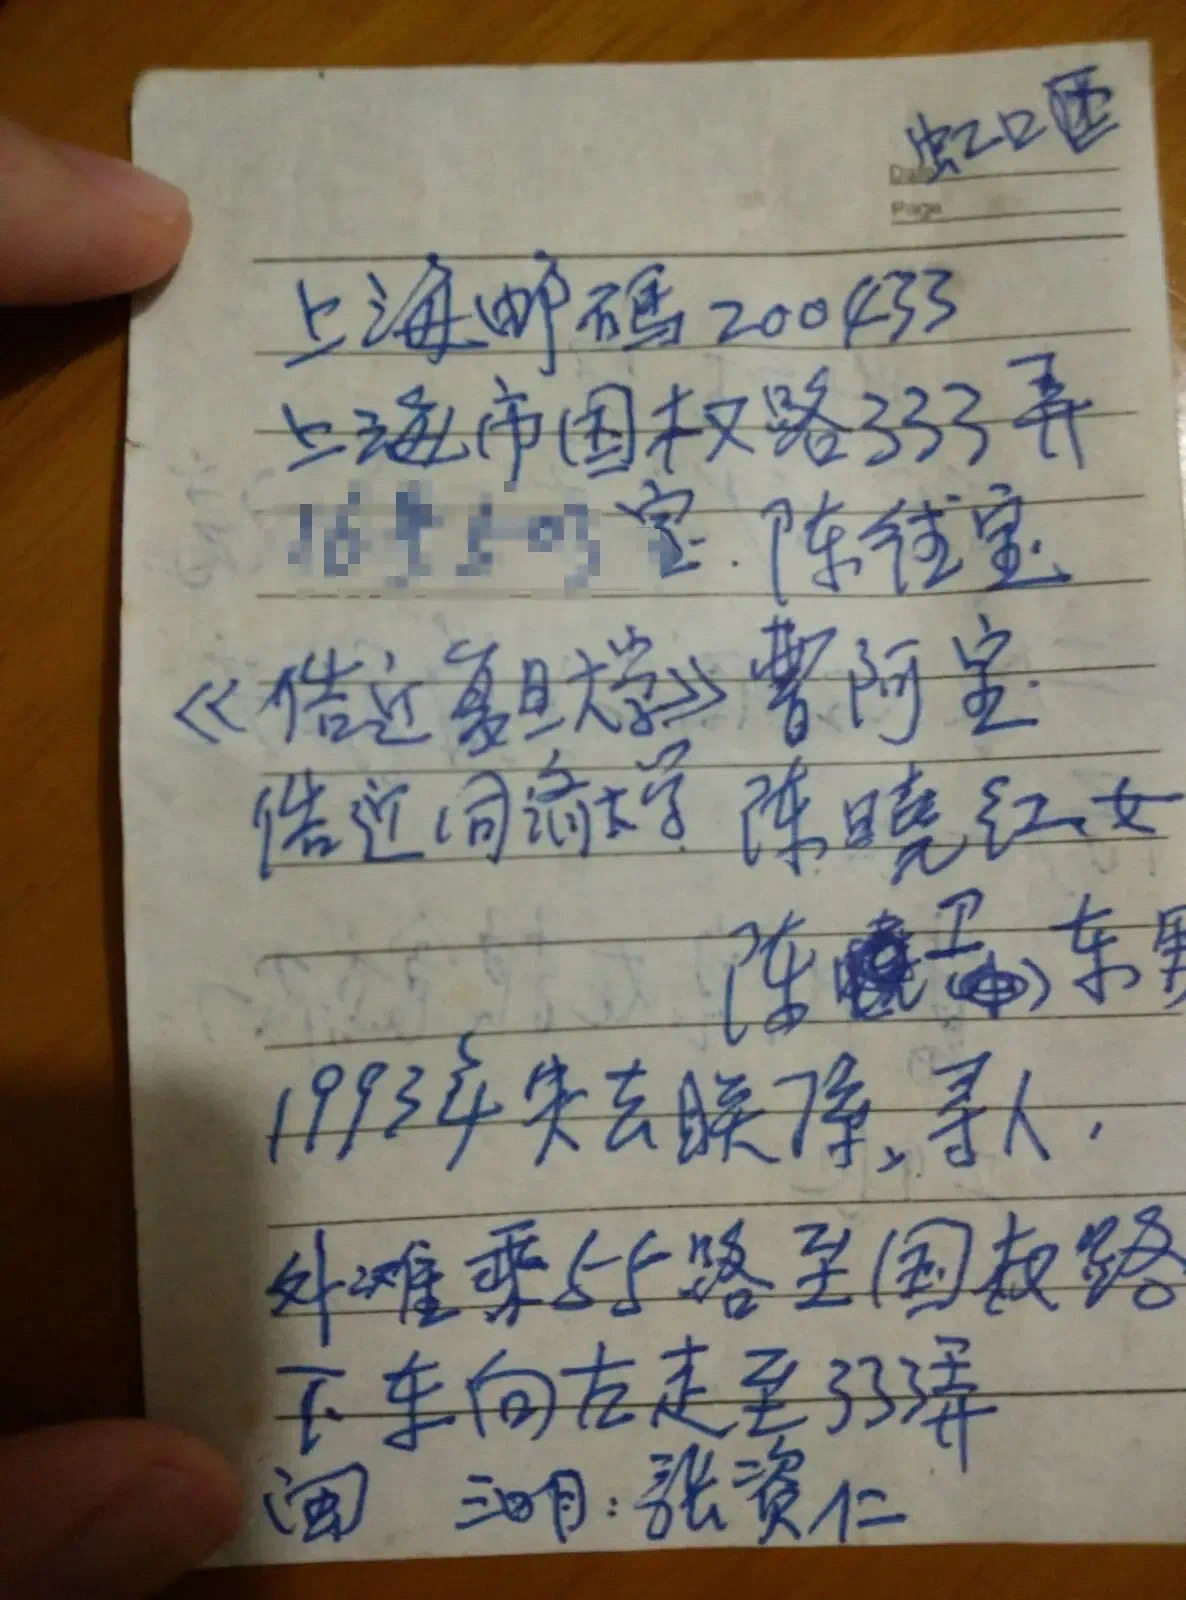 虹口区
Date
Page
上海邮码200433
上海市国权路333弄
室. 陈径宝.
《佶近复旦大学》曹阿宝.
佶近同济大学 陈曉红女
陈卫(中)东男
1993年失去联係,寻人.
外滩乘55路至国权路
下车向左走至333弄
闽 三明:張资仁